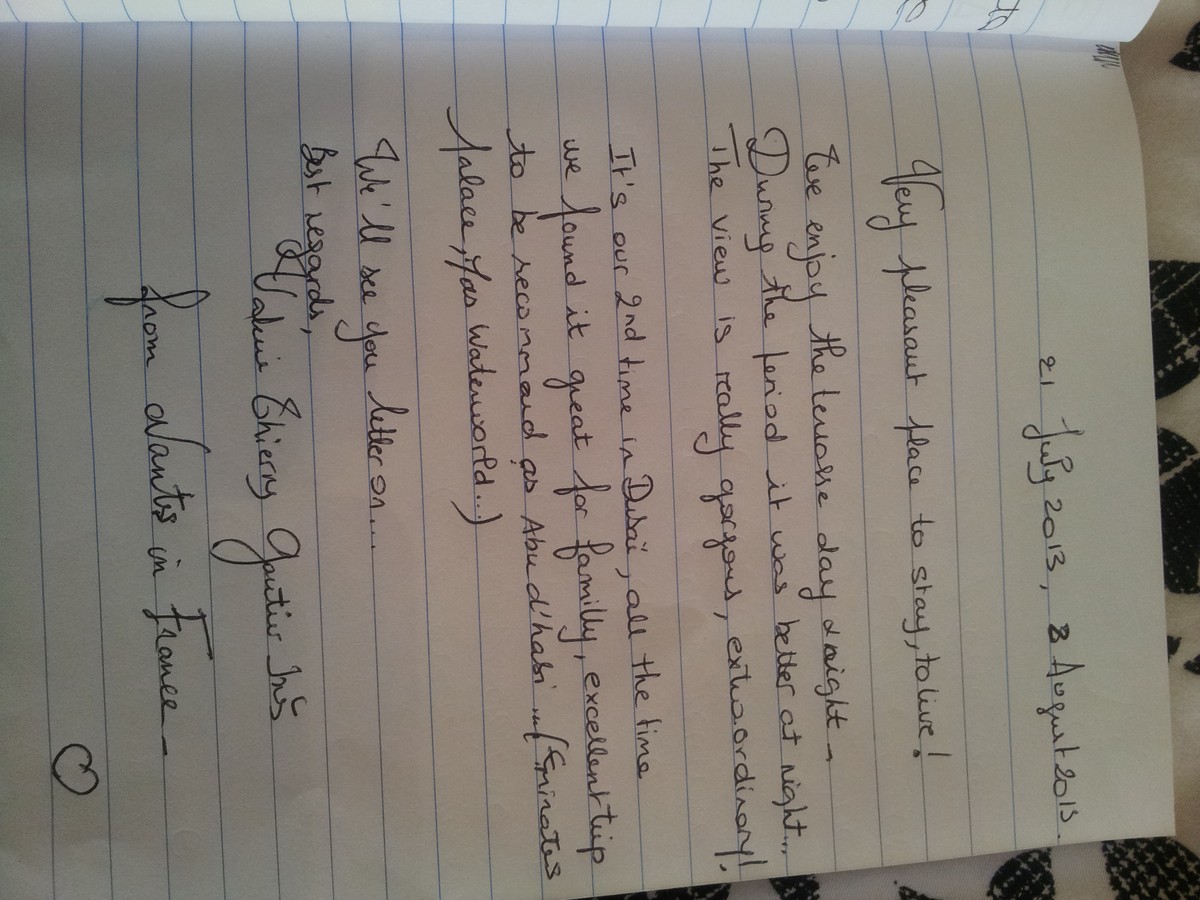 21 July 2013, 3 August 2013.
Very pleasant place to stay, to live!
We enjoy the terrasse day & night -
During the period it was better at night...
The view is really gorgous, extraordinary!
It's our 2nd time in Dubaï, all the time
we found it great for familly, excellent trip
to be recommand as Abu d'habi ... (Emirates
Palace, Yas Waterworld...)
We'll see you letter on...
Best regards,
Valérie Thierry Gautier Inès
from Nantes in France -